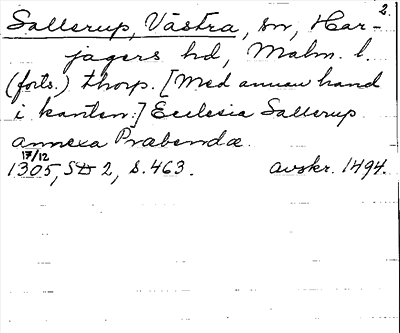 2.
Sallerup, Västra, sn, Har-
jagers hd, Malm. l.
(forts.) thorp. [Med annan hand
i kanten:] Ecclesia Sallerup
annexa Præbendæ.
17/12
1305, SD 2, s. 463. avskr. 1494.